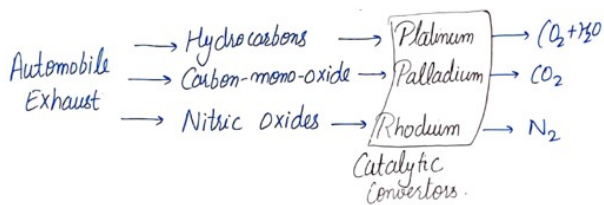 Automobile Exhaust → Hydrocarbons → Platinum → CO₂+H₂O
→ Carbon-mono-oxide → Palladium → CO₂
→ Nitric Oxides → Rhodium → N₂
Catalytic
Convertors.